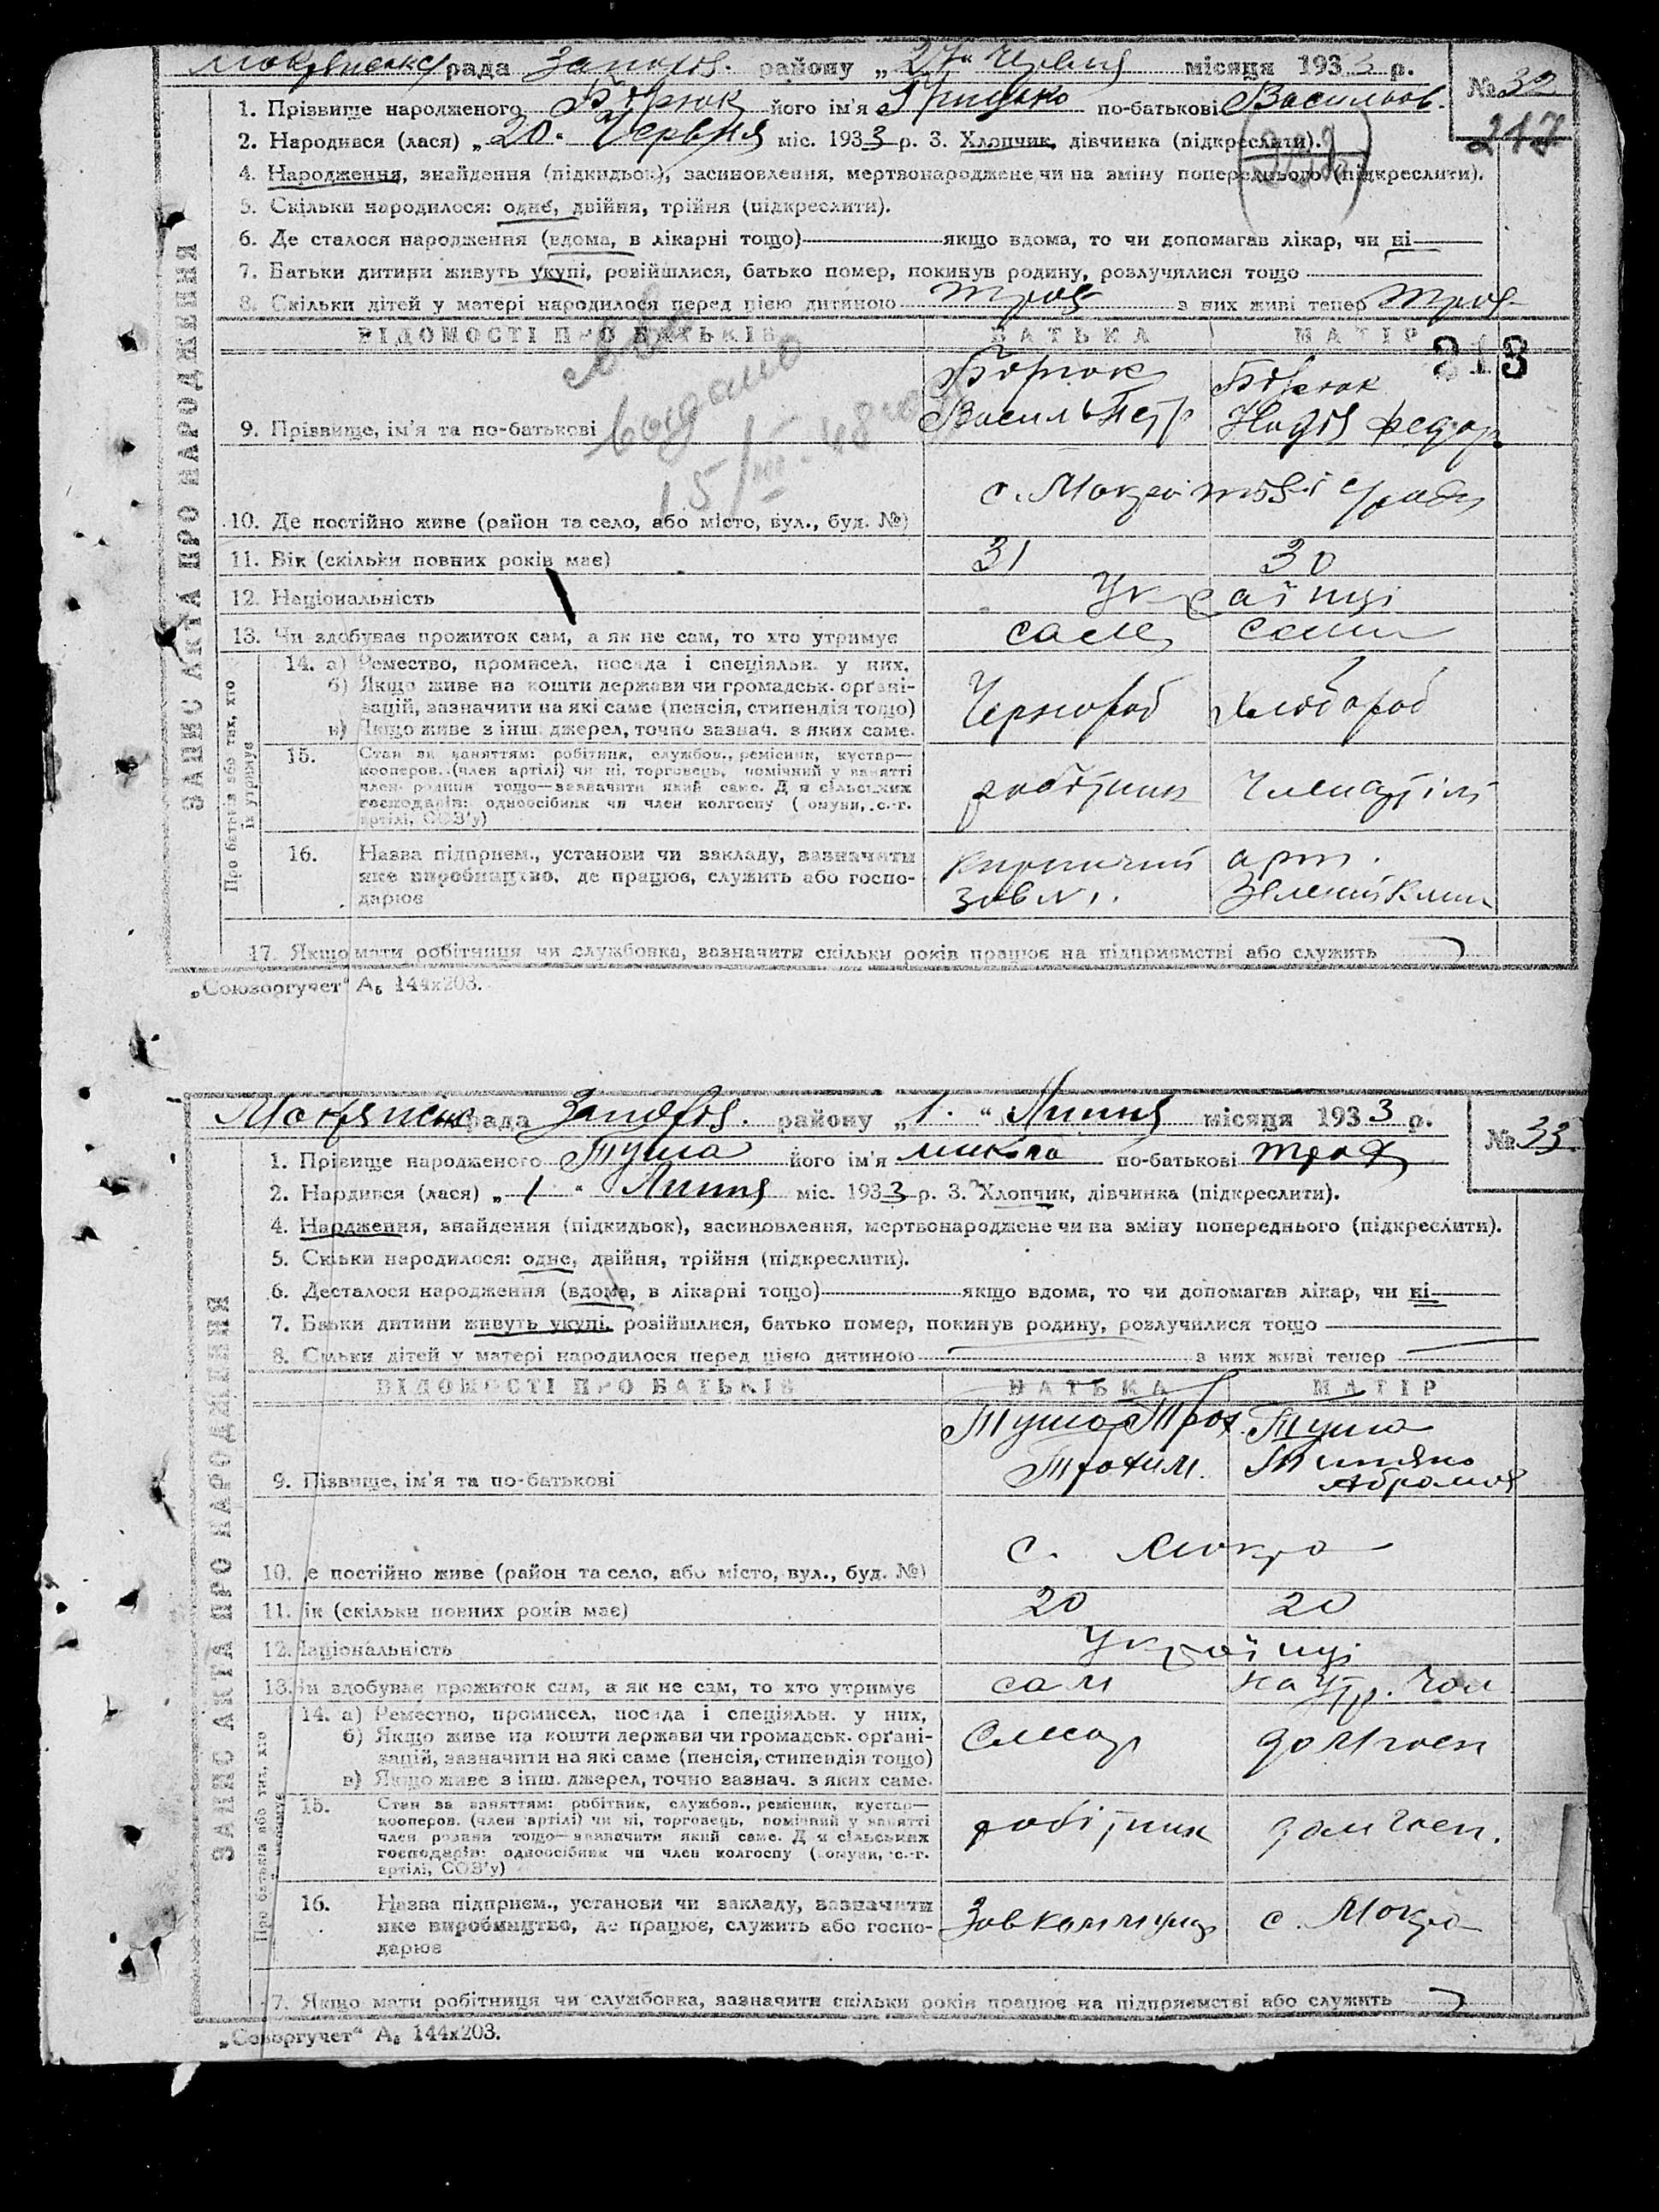 рада Запоріз. району „27“ Червня місяця 1933 р.
№ 32
217
1. Прізвище народженого Бірюк його ім'я Грицько по-батькові Васильов.
2. Народився (лася) „20“ Червня міс. 1933 р. 3. Хлопчик, дівчинка (підкреслити).
4. Народження, знайдення (підкидьок), засиновлення, мертвонароджене чи на зміну попереднього (підкреслити).
5. Скільки народилося: одне, двійня, трійня (підкреслити).
6. Де сталося народження (вдома, в лікарні тощо) якщо вдома, то чи допомагав лікар, чи ні
7. Батьки дитини живуть укупі, розійшлися, батько помер, покинув родину, розлучилися тощо
8. Скільки дітей у матері народилося перед цією дитиною троє з них живі тепер троє
ЗАПИС АКТА ПРО НАРОДЖЕННЯ
ВІДОМОСТІ ПРО БАТЬКІВ БАТЬКА МАТІР
213
Бірюк Бірюк
9. Прізвище, ім'я та по-батькові Василь Петр Надія Федор.
выдано
15/III-48
10. Де постійно живе (район та село, або місто, вул., буд. №) с. Мокра
11. Вік (скільки повних років має) 31 30
12. Національність Українці
13. Чи здобуває прожиток сам, а як не сам, то хто утримує сам сама
Про батьків або тих, хто їх утримує
14. а) Ремество, промисел, посада і спеціяльн. у них,
б) Якщо живе на кошти держави чи громадськ. орґані-
зацій, зазначити на які саме (пенсія, стипендія тощо)
в) Якщо живе з інш. джерел, точно зазнач. з яких саме.
Чорнороб хлібороб
15. Стан за заняттям: робітник, службов., ремісник, кустар—
кооперов. (член артілі) чи ні, торговець, помічний у занятті
член родини тощо—зазначити який саме. Для сільських
господарів: одноосібник чи член колгоспу (комуни, с.-г.
артілі, СОЗ'у)
робітник член артілі
16. Назва підприєм., установи чи закладу, зазначити
яке виробництво, де працює, служить або госпо-
дарює
кирпичний арт.
зав №1. Зелений Клин
17. Якщо мати робітниця чи службовка, зазначити скільки років працює на підприємстві або служить
„Союзоргучет“ А₅ 144х203.
рада Запоріз. району „1“ Липня місяця 1933 р.
№ 33
1. Прізвище народженого Туша його ім'я Микола по-батькові Троф
2. Народився (лася) „1“ Липня міс. 1933 р. 3. Хлопчик, дівчинка (підкреслити).
4. Народження, знайдення (підкидьок), засиновлення, мертвонароджене чи на зміну попереднього (підкреслити).
5. Скільки народилося: одне, двійня, трійня (підкреслити).
6. Де сталося народження (вдома, в лікарні тощо) якщо вдома, то чи допомагав лікар, чи ні
7. Батьки дитини живуть укупі, розійшлися, батько помер, покинув родину, розлучилися тощо
8. Скільки дітей у матері народилося перед цією дитиною з них живі тепер
ЗАПИС АКТА ПРО НАРОДЖЕННЯ
ВІДОМОСТІ ПРО БАТЬКІВ БАТЬКА МАТІР
Туша Троф. Туша
9. Прізвище, ім'я та по-батькові Трохим. Титяна
Абрамов
10. Де постійно живе (район та село, або місто, вул., буд. №) с. Мокра
11. Вік (скільки повних років має) 20 20
12. Національність Українці
13. Чи здобуває прожиток сам, а як не сам, то хто утримує сам на утр. чол
Про батьків або тих, хто їх утримує
14. а) Ремество, промисел, посада і спеціяльн. у них,
б) Якщо живе на кошти держави чи громадськ. орґані-
зацій, зазначити на які саме (пенсія, стипендія тощо)
в) Якщо живе з інш. джерел, точно зазнач. з яких саме.
Слюсар домгосп
15. Стан за заняттям: робітник, службов., ремісник, кустар—
кооперов. (член артілі) чи ні, торговець, помічний у занятті
член родини тощо—зазначити який саме. Для сільських
господарів: одноосібник чи член колгоспу (комуни, с.-г.
артілі, СОЗ'у)
робітник домгосп.
16. Назва підприєм., установи чи закладу, зазначити
яке виробництво, де працює, служить або госпо-
дарює
Зав комунар с. Мокра
17. Якщо мати робітниця чи службовка, зазначити скільки років працює на підприємстві або служить
„Союзоргучет“ А₅ 144х203.